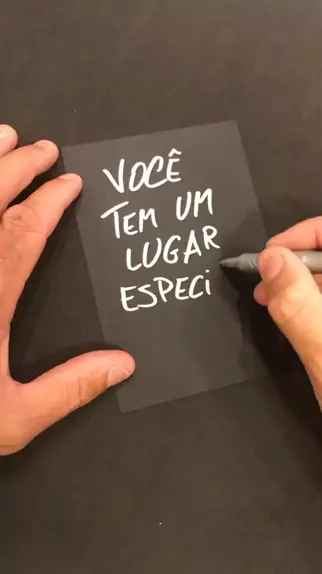 VOCÊ
TEM UM
LUGAR
ESPECi